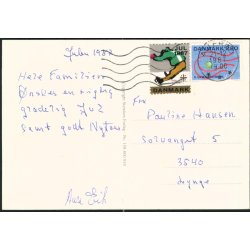 Julen 1987
Hele Familien
Ønskes en rigtig
glædelig Jul
samt godt Nytår
Fra
Pauline Hansen
Solvænget 5
3540
Lynge
JUL
1987
DANMARK
DANMARK 2.80